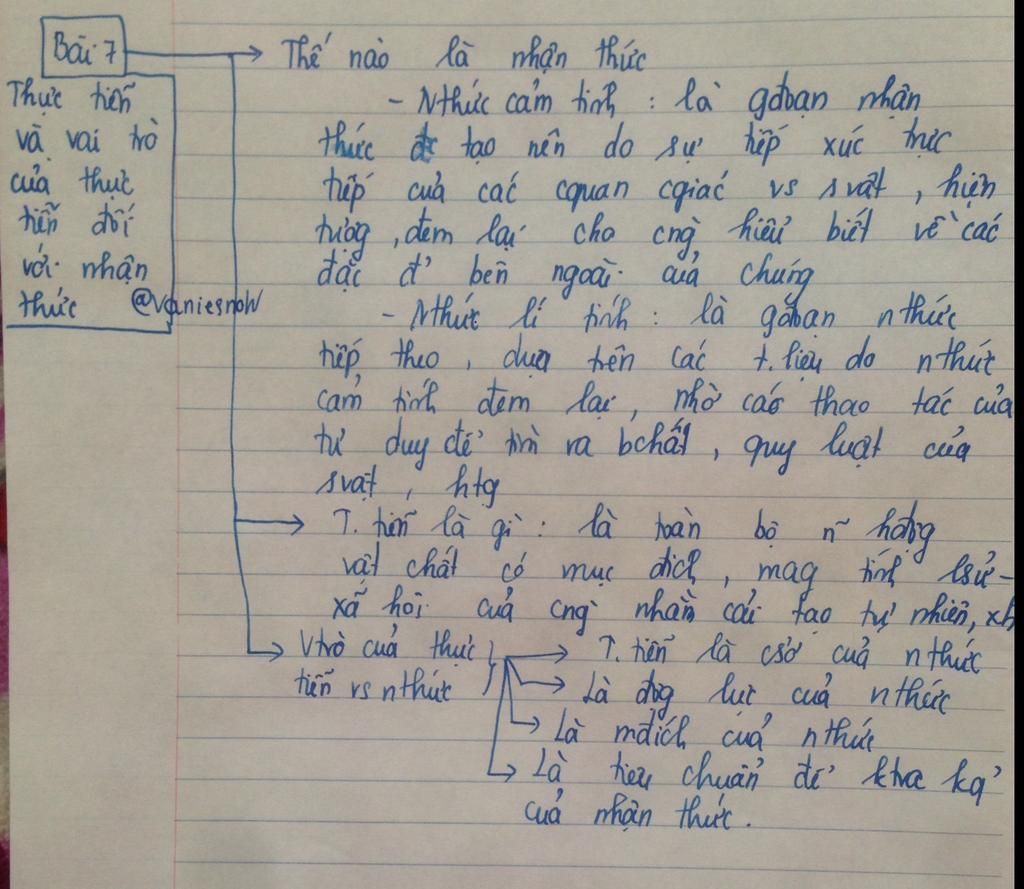 Bài 7
Thực tiễn
và vai trò
của thực
tiễn đối
với nhận
thức
@vaniesnow
Thế nào là nhận thức
- Nthức cảm tính : là gđoạn nhận
thức đc tạo nên do sự tiếp xúc trực
tiếp của các cquan cgiác vs svật , hiện
tượg , đem lại cho cng` hiểu biết về các
đặc đ' bên ngoài của chúng
- Nthức lí tính : là gđoạn nthức
tiếp theo , dựa trên các t.liệu do nthức
cảm tính đem lại , nhờ các thao tác của
tư duy để tìm ra bchất , quy luật của
svật , htg
T. tiễn là gì : là toàn bộ n~ hđộg
vật chất có mục đích , mag tính lsử -
xã hội của cng` nhằm cải tạo tự nhiên, xh
Vtrò của thực
tiễn vs nthức
T. tiễn là csở của nthức
Là độg lực của nthức
Là mđích của nthức
Là tiêu chuẩn để ktra kq'
của nhận thức .